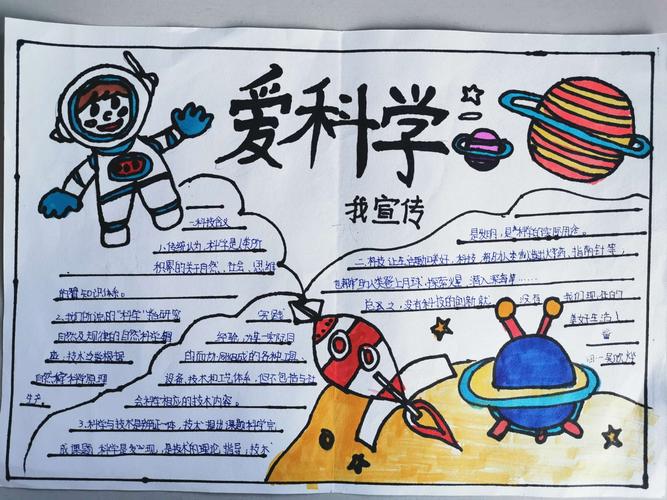 爱科学
我宣传
一.科技含义
1.传统认为,科学是人类所
积累的关于自然、社会、思维
的知识体系。
2.我们所说的"科学"指研究
自然及规律的自然科学
技术
自然科学原理
生产
实践
经验,为某一实际目
的而协同组成的各种工具,
设备、技术和工艺体系,但不包括与社
会科学相应的技术内容。
3.科学与技术是辩证一体,技术提出课题,科学完
成课题,科学是发现,是技术的理论指导;技术
是发明,是科学的实际应用。
二.科技
指南针等,
人类登上月球、探索火星、潜入深海
总之,没有科技的创新就
没有
我们现在的
美好生活!